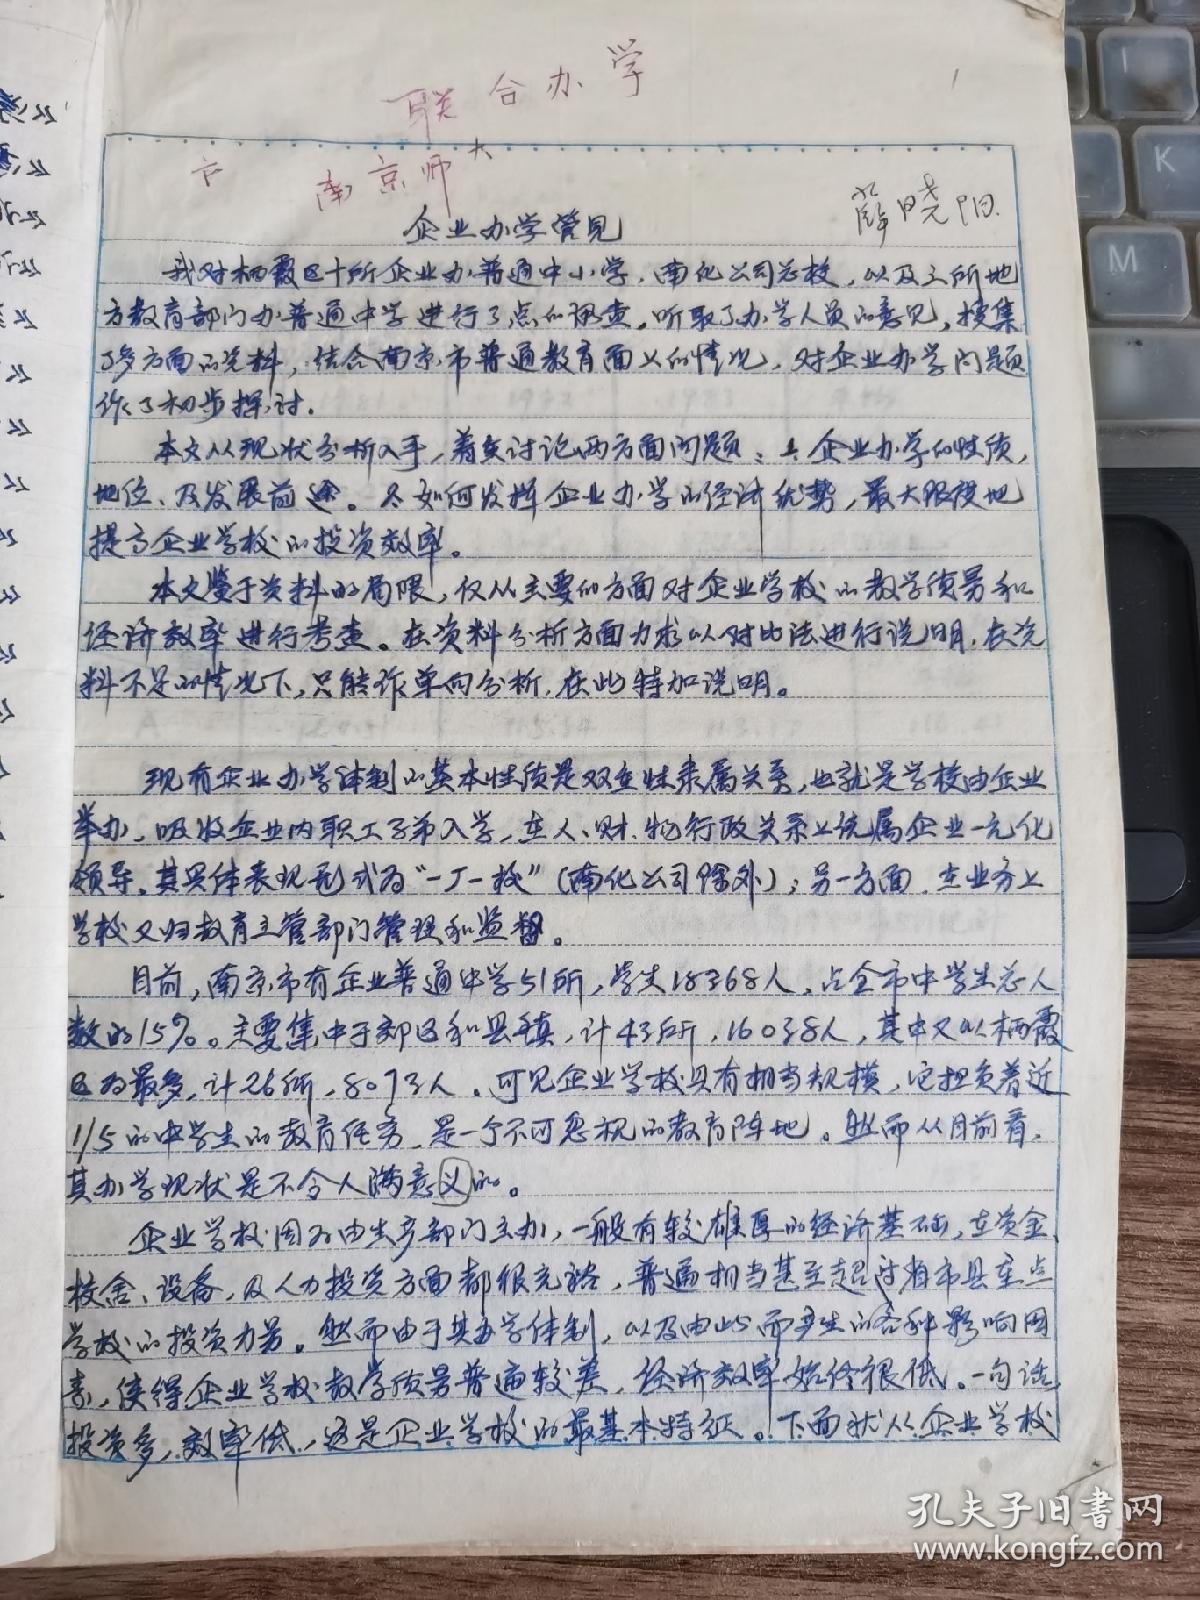 联合办学
1
南京师大
薛晓阳
企业办学管见
我对栖霞区十所企业办普通中小学,南化公司总校,以及三所地
方教育部门办普通中学进行了点的调查。听取了办学人员的意见,搜集
了多方面的资料,结合南京市普通教育面上的情况,对企业办学问题
作了初步探讨.
本文从现状分析入手,着重讨论两方面问题:1.企业办学的性质,
地位、及发展前途。2.如何发挥企业办学的经济优势,最大限度地
提高企业学校的投资效率。
本文鉴于资料的局限,仅从主要的方面对企业学校的教学质量和
经济效率进行考查。在资料分析方面力求以对比法进行说明,在资
料不足的情况下,只能作单向分析,在此特加说明。
现有企业办学体制的基本性质是双重性隶属关系,也就是学校由企业
举办,吸收企业内职工子弟入学,在人、财、物行政关系上统属企业一元化
领导,其具体表现形式为"一厂一校"(南化公司除外);另一方面,在业务上
学校又归教育主管部门管理和监督。
目前,南京市有企业普通中学51所,学生18368人,占全市中学生总人
数的15%。主要集中于郊区和县镇,计43所,16038人,其中又以栖霞
区为最多,计26所,8093人。可见企业学校具有相当规模,它担负着近
1/5的中学生的教育任务,是一个不可忽视的教育阵地。然而从目前看,
其办学现状是不令人满意义的。
企业学校因为由生产部门主办,一般有较雄厚的经济基础,在资金、
校舍、设备,及人力投资方面都很充裕,普遍相当甚至超过省市县重点
学校的投资力量。然而由于其办学体制,以及由此而产生的各种影响因
素,使得企业学校教学质量普遍较差,经济效率始终很低。一句话,
投资多,效率低,这是企业学校的最基本特征。下面就从企业学校
K
M
孔夫子旧书网
www.kongfz.com